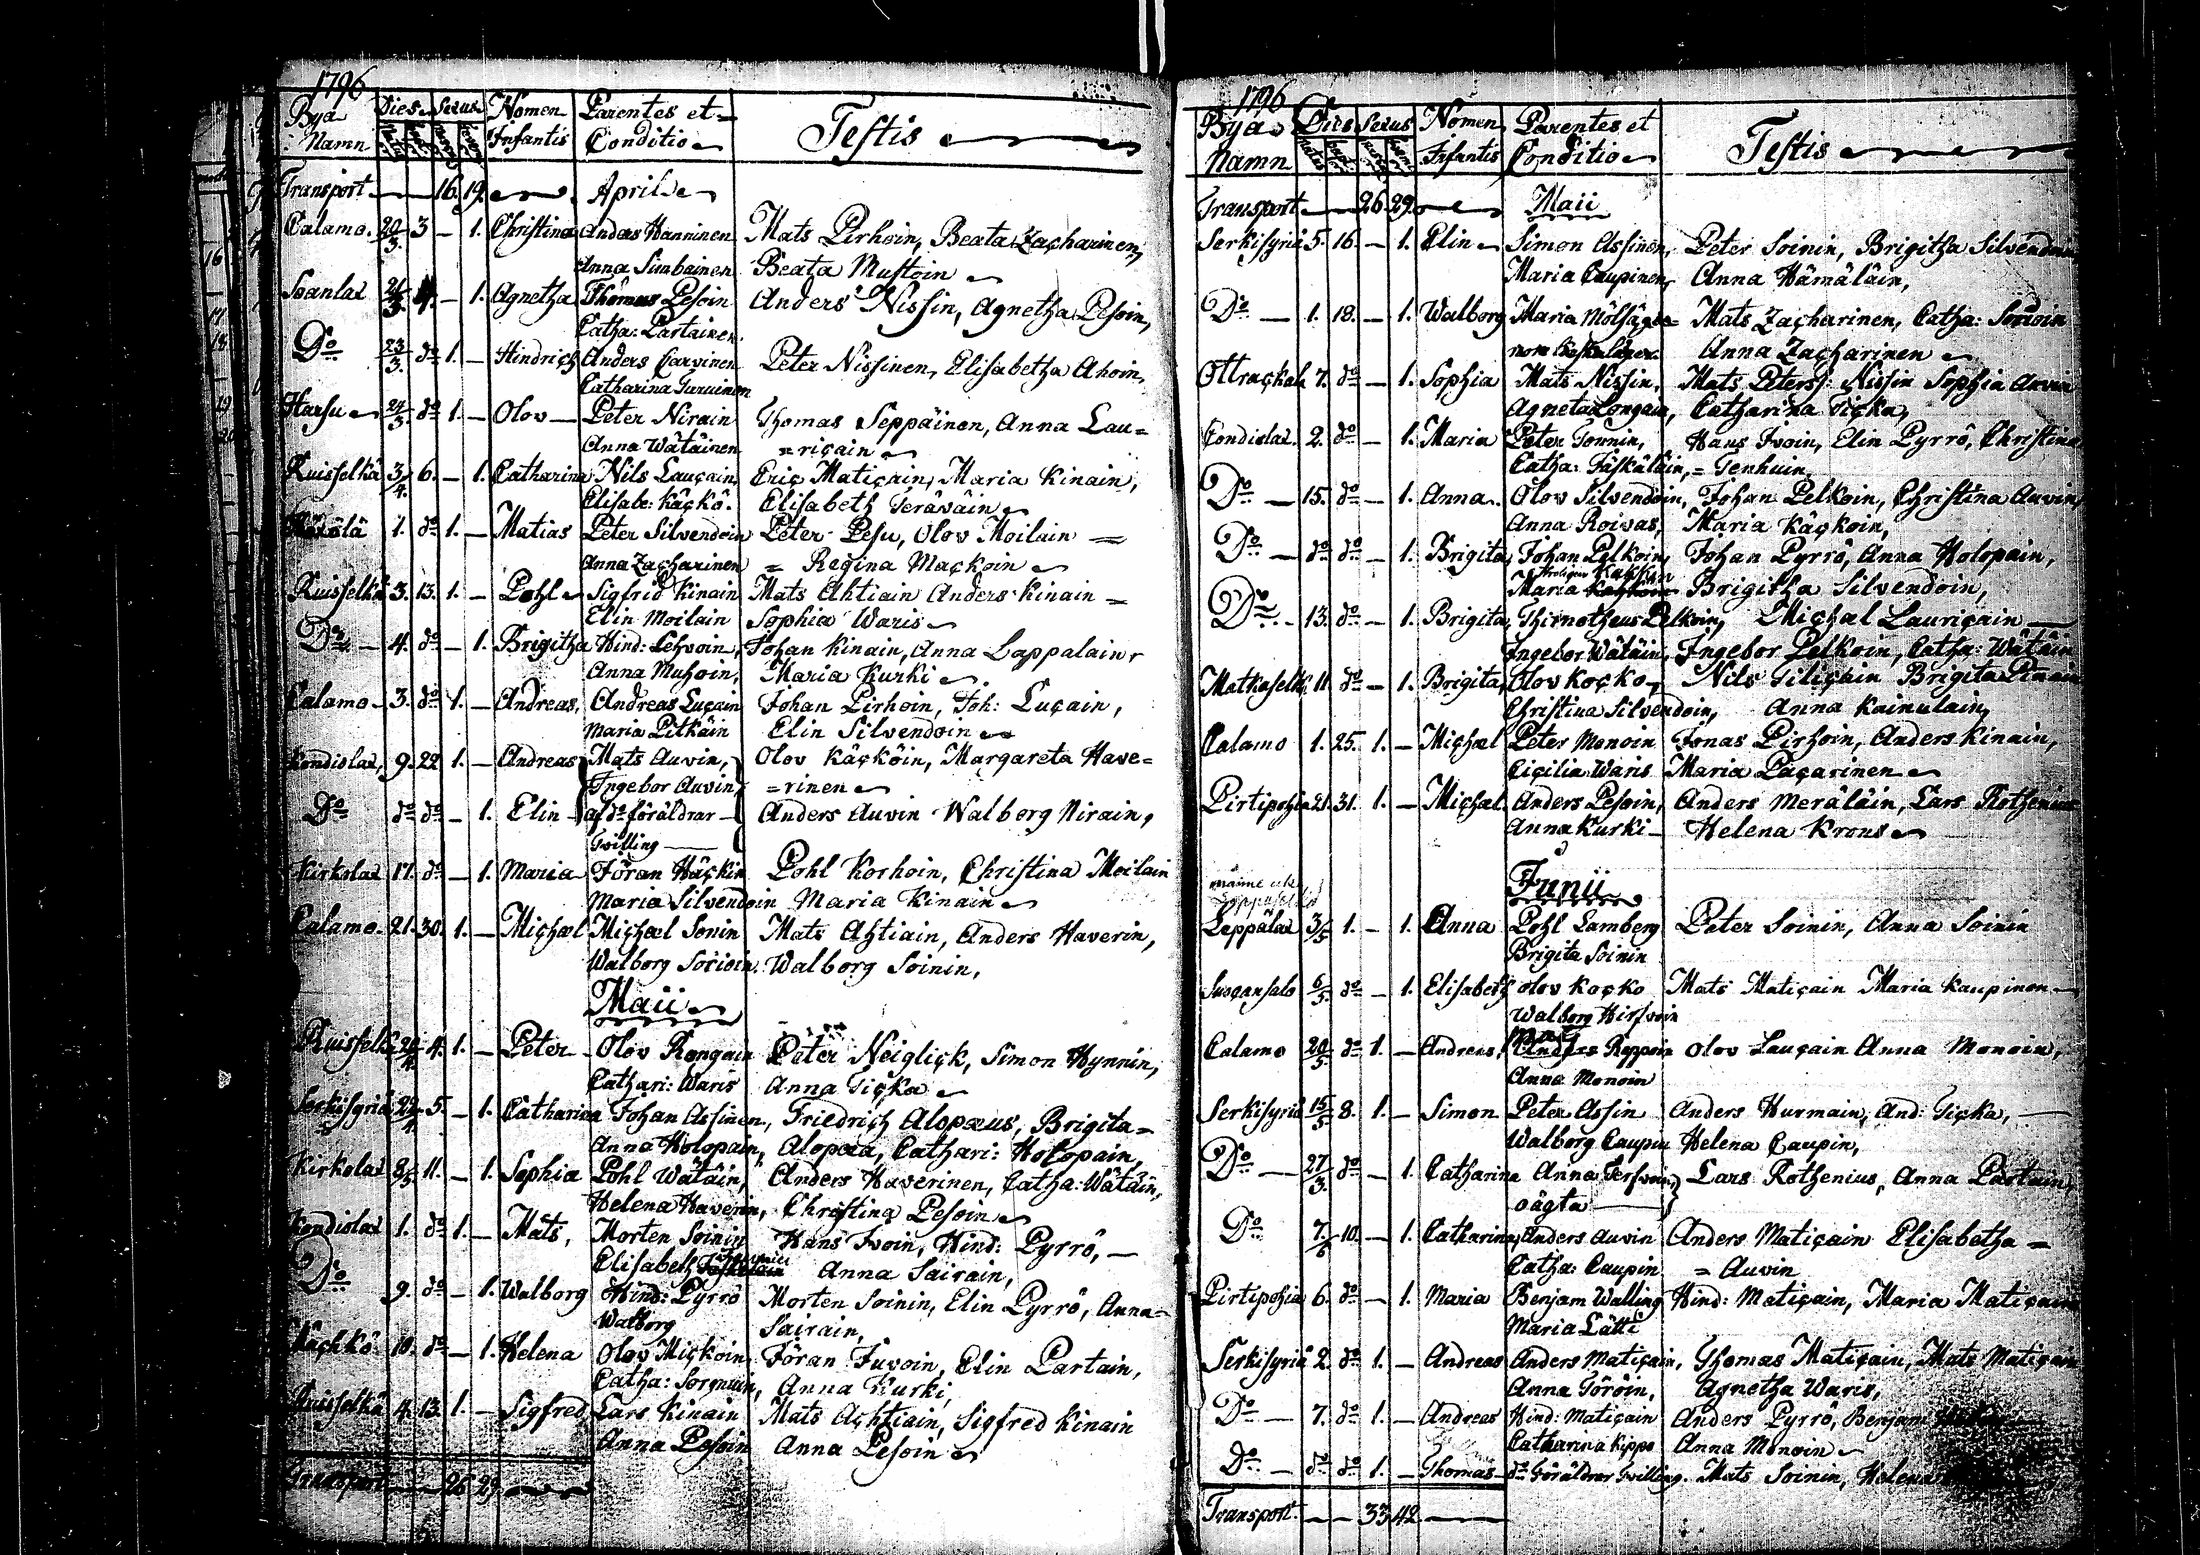 1796
Bya Dies Sexus Nomen Parentes et
Namn Infantis Conditio Testis
Transport — 16. 19. Aprilis
Calamo. 20/3. 3 — 1. Christina Anders Hanninen Mats Pirhoin, Beata Zacharinen,
Anna Simbainen Beata Mustoin
Soanlax 21/3. — 1. Agnetha Thomas Pesoin Anders Nissin, Agnetha Pesoin,
Catha: Partainen
Do 23/3. do 1. — Hindrich Anders Carvinen Peter Nissinen, Elisabetha Ahoin,
Catharina Turuinen
Harsu 24/3. do 1. — Olov Peter Nirain Thomas Seppäinen, Anna Lau=
Anna Wätäinen =ricain
Ruisselkä 3/4. 6. — 1. Catharina Nils Laucain, Eric Maticain, Maria Kinain,
Elisabe: Käckö. Elisabeth Teräväin
1. do 1. — Matias Peter Silvendoin Peter Pesu, Olov Moilain =
Anna Zacharinen = Regina Mackoin
Ruisselkä 3. 13. 1. — Pohl Sigfrid Kinain Mats Ahtiain Anders Kinain =
Elin Moilain Sophia Waris
Do — 4. do — 1. Brigitha Hind: Lehvoin, Johan Kinain, Anna Lappalain,
Anna Muhoin, Maria Kurki
Calamo 3. do 1. — Andreas, Andreas Lucain Johan Pirhoin, Joh: Lucain,
Maria Pitkäin Elin Silvendoin
Kondiolax, 9. 22 1. — Andreas Mats Auvin, Olov Käcköin, Margareta Have=
Ingebor Auvin =rinen
Do do do — 1. Elin af do föräldrar Anders Auvin Walborg Nirain,
Twilling
Kirkolax 17. do — 1. Maria Jöran Häckin Pohl Korhoin, Christina Moilain
Maria Silvendoin Maria Kinain
Calamo 21. 30. 1. — Michæl Michæl Sonin Mats Ahtiain, Anders Haverin,
Walborg Walborg Soinin,
Maii
Ruisselkä 4. 1. — Peter Olov Rongain Peter Neiglick, Simon Hynnin,
Cathari: Waris Anna Ticka
Serkisyriä 5. — 1. Catharina Johan Assinen, Friedrich Alopæus, Brigita=
Anna Holopain, Alopæa, Cathari: Holopain,
Kirkolax 8/5. 11. — 1. Sophia Pohl Wätäin, Anders Haverinen, Catha: Wätäin,
Helena Haverin, Christina Pesoin
Kondiolax 1. do 1. — Mats, Morten Soinin Hans Ivoin, Hind: Pyrrö, —
Elisabeth Anna Sairain,
Do 9. do — 1. Walborg Hind: Pyrrö Morten Soinin, Elin Pyrrö, Anna=
Walborg Sairain,
10. do — 1. Helena Olov Mickoin Jöran Juvoin, Elin Partain,
Catha: Anna Kurki,
Ruisselkä 4. 13. 1. — Sigfred Lars Kinain Mats Achtiain, Sigfred Kinain
Anna Pesoin Anna Pesoin
Transport — 26 29
1796
Bya Dies Sexus Nomen Parentes et
Namn Infantis Conditio Testis
Transport — 26. 29. Maii
Serkisyriä 5. 16. — 1. Elin Simon Assinen, Peter Soinin, Brigitha Silvendoin
Maria Caupinen, Anna Hämäläin,
Do — 1. 18. — 1. Walborg Maria Mats Zacharinen, Catha:
Anna Zacharinen
Ottrackala 7. do — 1. Sophia Mats Nissin, Mats Peterss: Nissin Sophia Auvin
Agneta Longain, Catharina Ticka,
Kondiolax. 2. do — 1. Maria Peter Tonnin, Hans Ivoin, Elin Pyrrö, Christina
Catha: Jäskäläin, = Tenhuin
Do — 15. do — 1. Anna. Olov Silvendoin, Johan Pelkoin, Christina Auvin,
Anna Roivas, Maria Käckoin,
Do — do do — 1. Brigita, Johan Pelkoin, Johan Pyrrö, Anna Holopain,
Maria Brigitha Silvendoin,
Do — 13. do — 1. Brigita, Thimotheus Pelkoin, Michæl Lauricain
Ingebor Wätäin, Ingebor Pelkoin, Catha: Wätäin
Matkaselkä 11. do — 1. Brigita, Olov Kocko, Nils Tilicain Brigita
Christina Silvendoin, Anna Kainulain,
Calamo 1. 25. 1. — Michæl Peter Monoin Jonas Pirhoin, Anders Kinain,
Cicilia Waris Maria Pacarinen
Pirtipohia 21. 31. 1. — Michæl. Anders Pesoin, Anders Meräläin, Lars Rothenius
Anna Kurki — Helena Krons
Junii
Leppälax 3/5 1. — 1. Anna Pohl Lamberg Peter Soinin, Anna Soinin
Brigita Soinin
Suoganssalo 6/5 do — 1. Elisabeth Olov Kocko Mats Maticain Maria Kaupinen
Walborg Hirsvoin
Calamo 20/5 do 1. — Andreas, Reppoin Olov Laucain Anna Monoin,
Anna Monoin
Serkisyriä 15/5 8. 1. — Simon Peter Assin Anders Hurmain, And: Ticka, —
Walborg Caupin Helena Caupin,
Do — 27/3. do — 1. Catharina Anna Lars Rothenius, Anna Partain,
oägta
Do 7/6 10. — 1. Catharina, Anders Auvin Anders Maticain Elisabetha =
Catha: Caupin = Auvin
Pirtipohia 6. do — 1. Maria Benjam Walling Hind: Maticain, Maria Maticain
Maria Lätti
Serkisyriä 2. do 1. — Andreas Anders Maticain, Thomas Maticain, Mats Maticain
Anna Töröin, Agnetha Waris,
Do — 7. do 1. — Andreas Hind: Maticain Anders Pyrrö, Benjam
Catharina Kippo Anna Monoin
Do — do do 1. — Thomas do Föräldrar Twilling. Mats Soinin, Helena
Transport. — 33 42 —